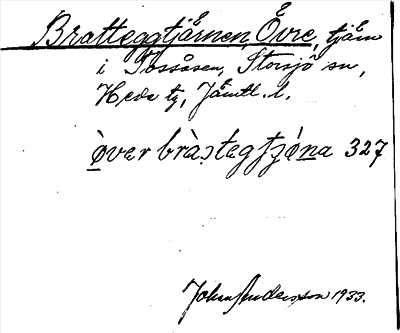 Bratteggtjärnen, Övre, tjärn
i Tossåsen, Storsjö sn,
Hede tg, Jämtl. l.
òver bràstegtjó̱na 327
Johan Anderson 1933.